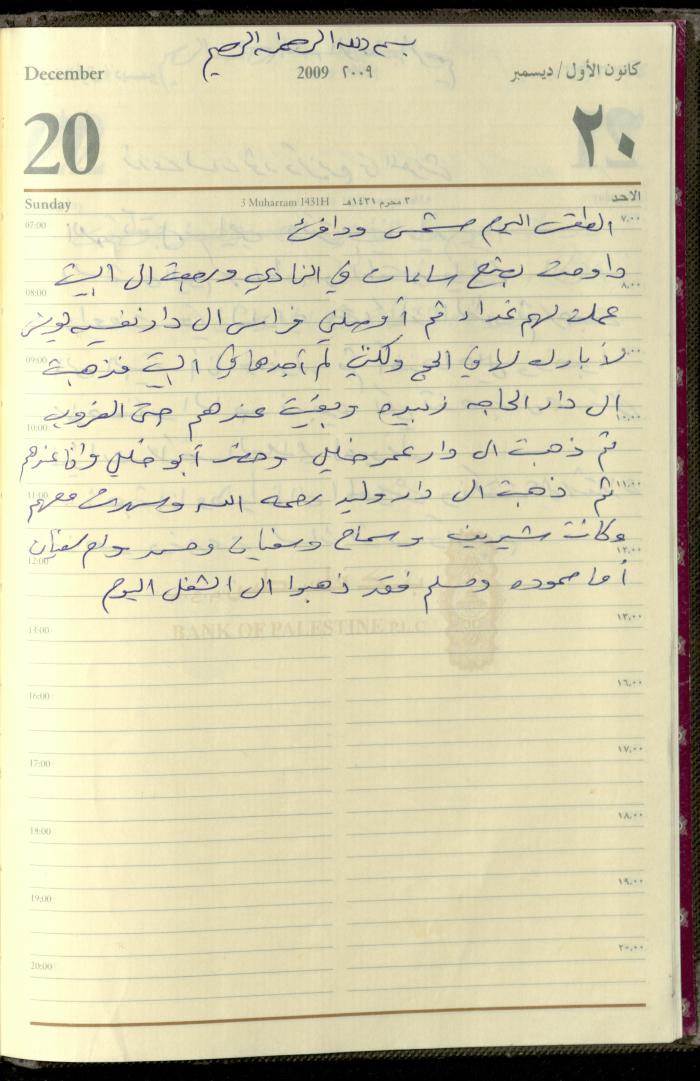 بسم الله الرحمن الرحيم
December 2009 ٢٠٠٩ كانون الأول / ديسمبر
20 ٢٠
Sunday 3 Muharram 1431H ٣ محرم ١٤٣١هـ الاحد
07:00 ٧,٠٠
الطقس اليوم مشمس ودافئ
داومت بضع ساعات في النادي ورجعت الى البيت
08:00 ٨,٠٠
عملت لهم غداء ثم أوصلني فراس الى دار نفيسه
لأبارك لها في الحج ولكني لم أجدها في البيت فذهبت
09:00
الى دار الحاجه زبيده وبقيت عندهم حتى الغروب
10:00 ١٠,٠٠
ثم ذهبت الى دار عمر خليل وحضر أبو خليل وانا عندهم
11:00 ١١,٠٠
ثم ذهبت الى دار وليد رحمه الله وسهرت معهم
وكانت شيرين وسماح وسفيان وام سفيان
12:00 ١٢,٠٠
أما حموده ومسلم فقد ذهبوا الى الشغل اليوم
BANK OF PALESTINE P.L.C
13:00 ١٣,٠٠
16:00 ١٦,٠٠
17:00 ١٧,٠٠
18:00 ١٨,٠٠
19:00 ١٩,٠٠
20:00 ٢٠,٠٠